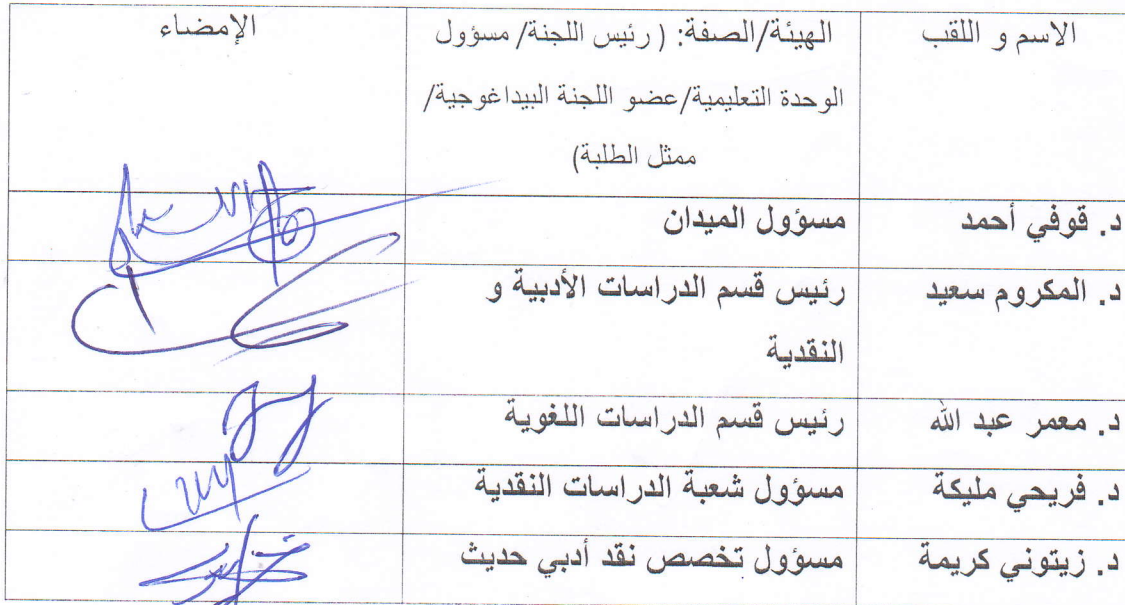 الاسم و اللقب
الهيئة/الصفة: (رئيس اللجنة/ مسؤول
الوحدة التعليمية/عضو اللجنة البيداغوجية/
ممثل الطلبة)
الإمضاء
د. قوفي أحمد
مسؤول الميدان
د. المكروم سعيد
رئيس قسم الدراسات الأدبية و
النقدية
د. معمر عبد الله
رئيس قسم الدراسات اللغوية
د. فريحي مليكة
مسؤول شعبة الدراسات النقدية
د. زيتوني كريمة
مسؤول تخصص نقد أدبي حديث